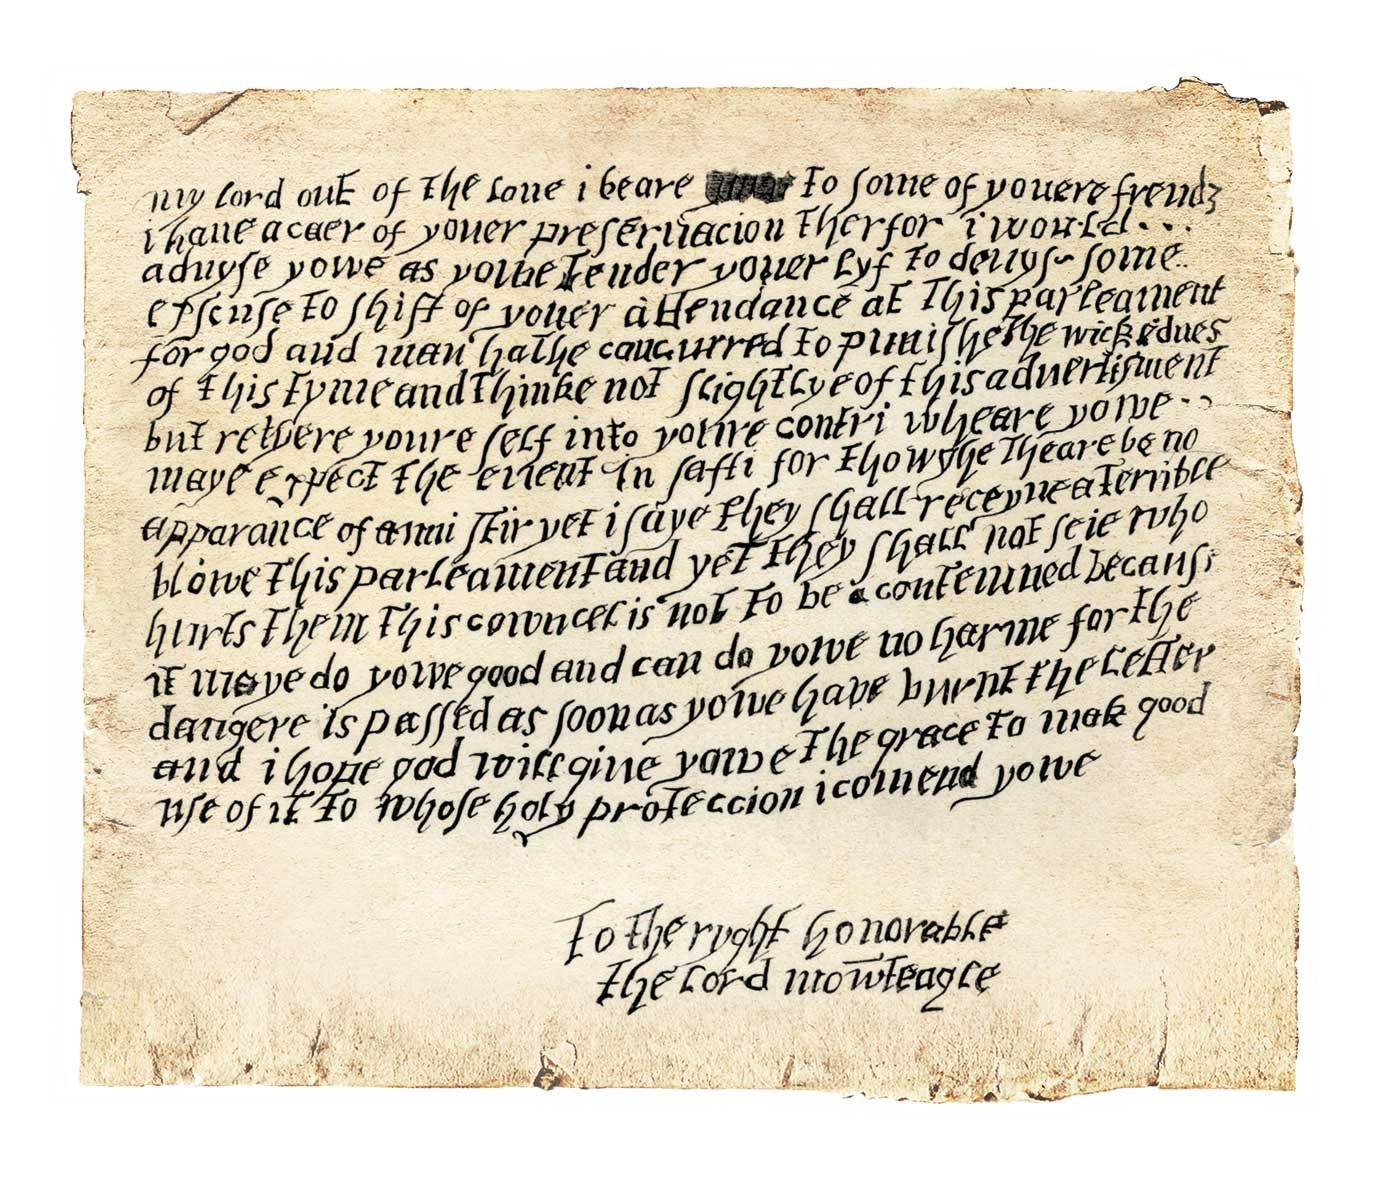 my lord out of the loue i beare to some of youere frendz
i haue a caer of youer preseruacion therfor i would
aduyse yowe as yowe tender youer lyf to deuys some
exscuse to shift of youer attendance at this parleament
for god and man hathe concurred to punishe the wickednes
of this tyme and thinke not slightlye of this aduertisment
but retyere youre self into youre contri wheare yowe
maye expect the euent in safti for thowghe theare be no
apparance of anni stir yet i saye they shall receyue a terrible
blowe this parleament and yet they shall not seie who
hurts them this cowncel is not to be contemned because
it maye do yowe good and can do yowe no harme for the
dangere is passed as soon as yowe have burnt the letter
and i hope god will giue yowe the grace to mak good
use of it to whose holy proteccion i comend yowe
To the ryght honorable
the lord mowteagle